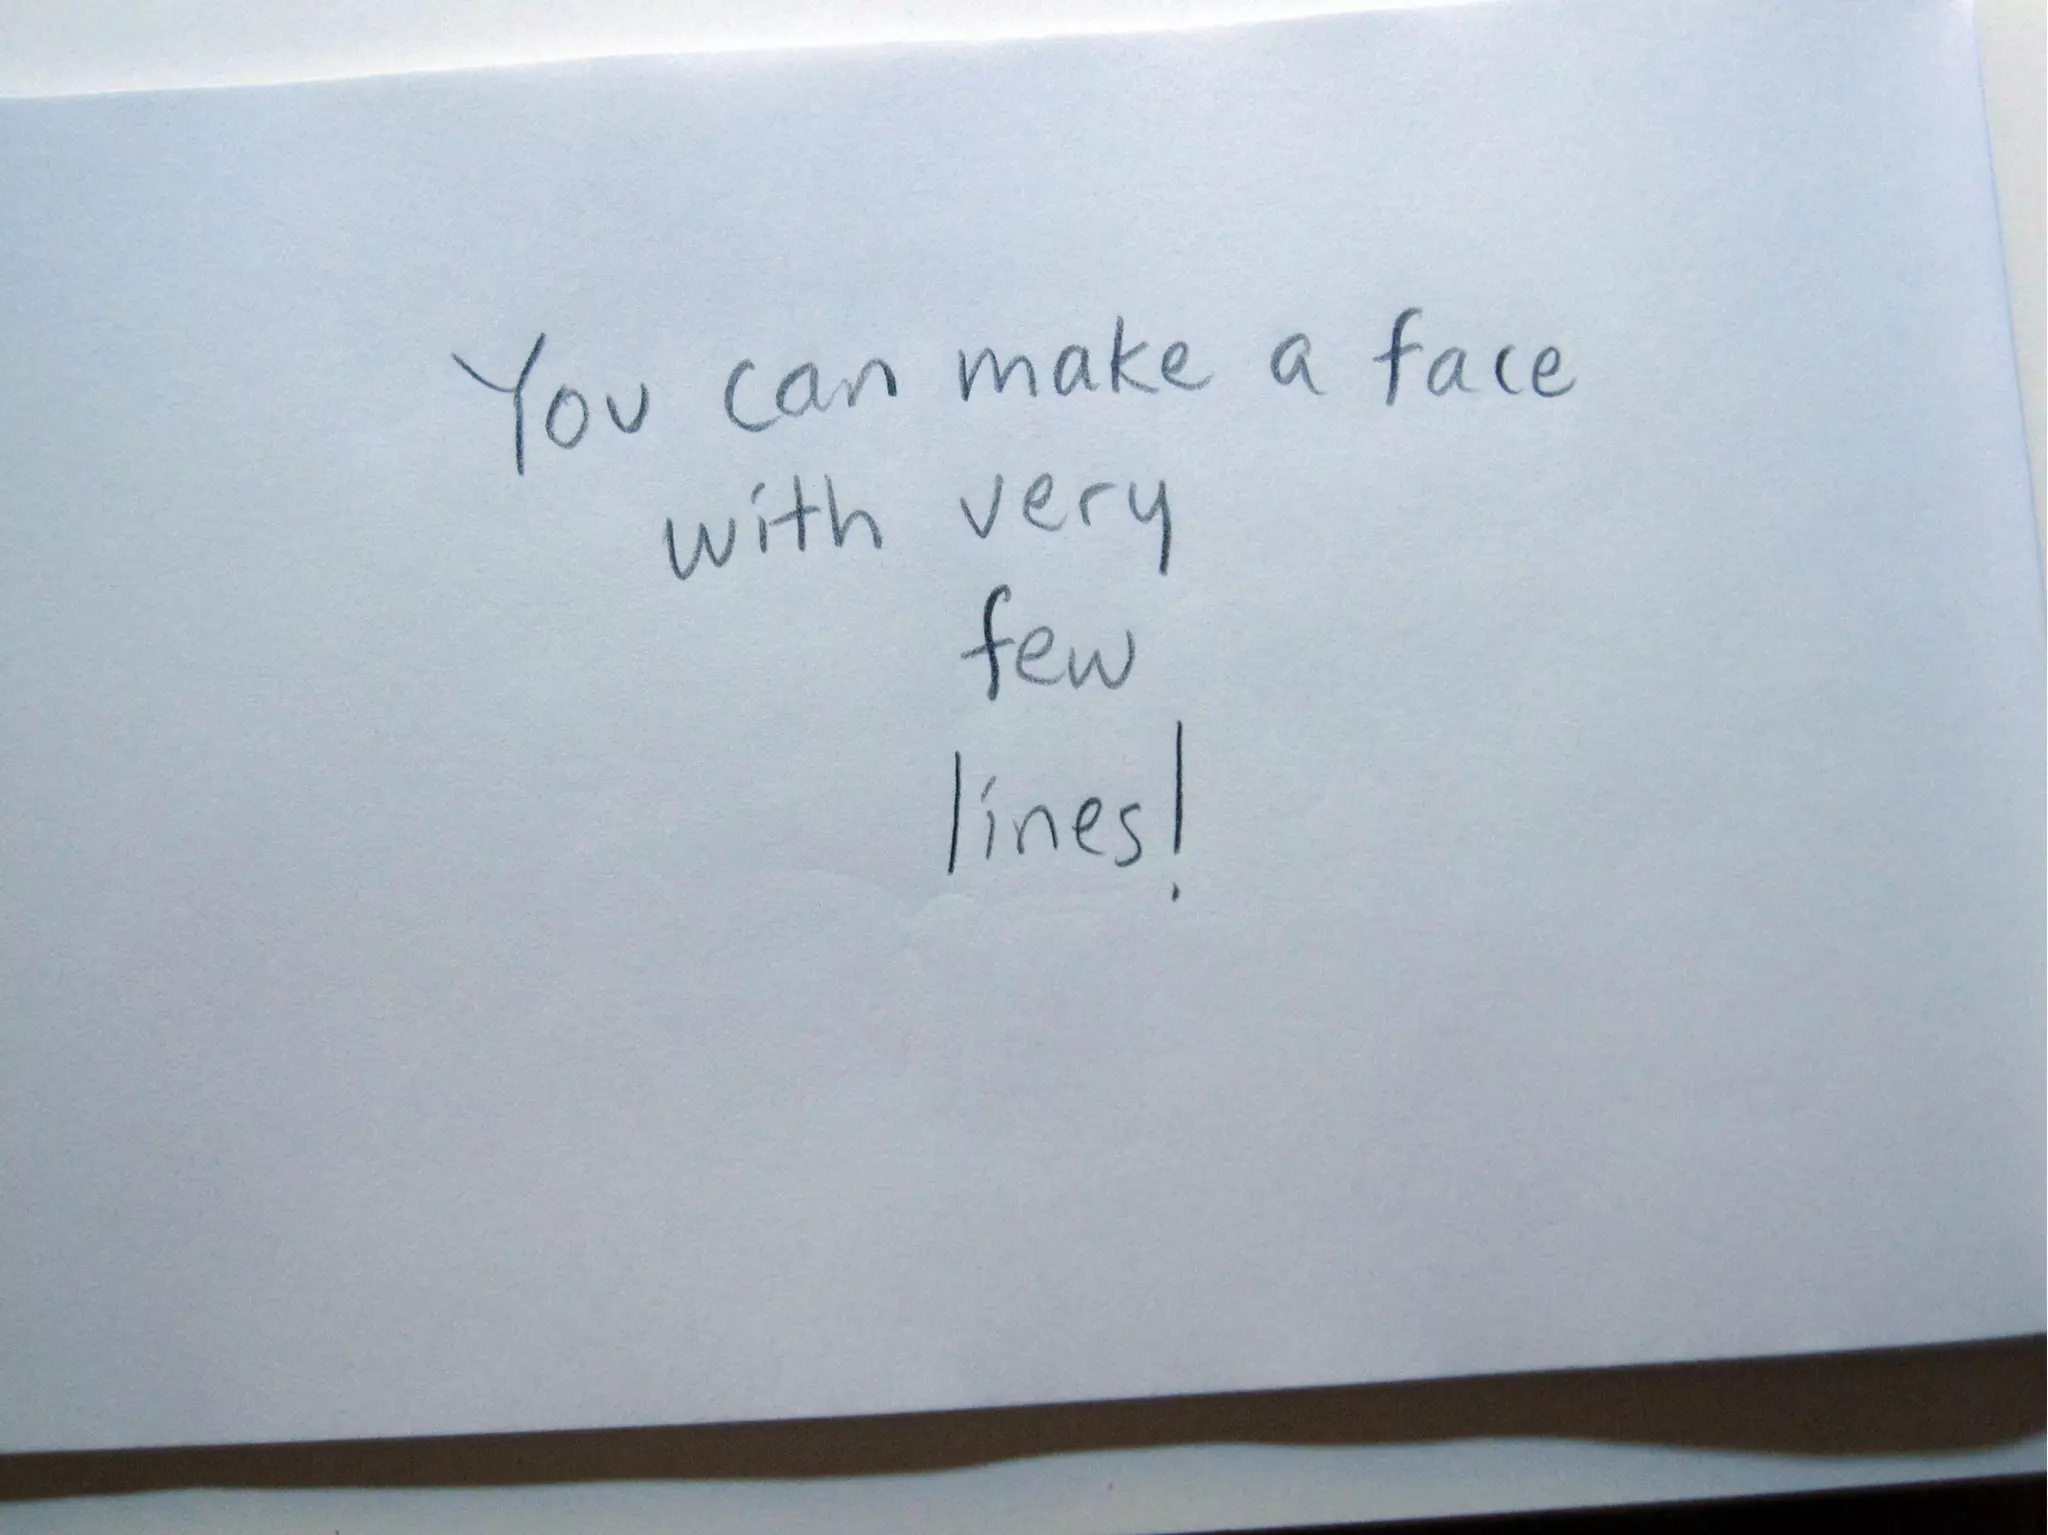 You can make a face
with very
few
lines!